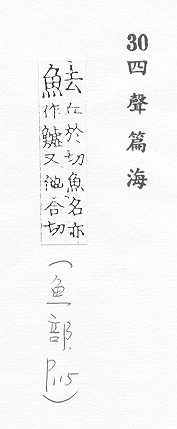 30 四聲篇海
魼 丘於切魚名亦
作鱋又他合切
(魚部. P115)